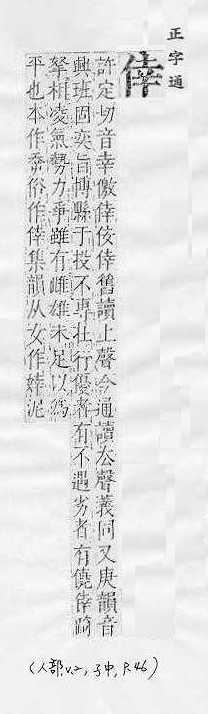 正字通
倖
許定切音幸儌倖佞倖舊讀上聲今通讀去聲義同又庚韻音
興班固奕旨博縣于投不專壯行優者有不遇劣者有僥倖踦
拏相凌氣勢力爭雖有雌雄未足以為
平也本作㚔俗作倖集韻从女作婞泥
(人部,v.2,子中,P.46)